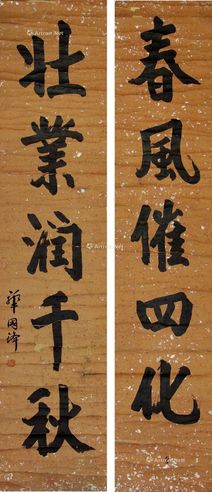 春風催四化
壯業潤千秋
華國鋒